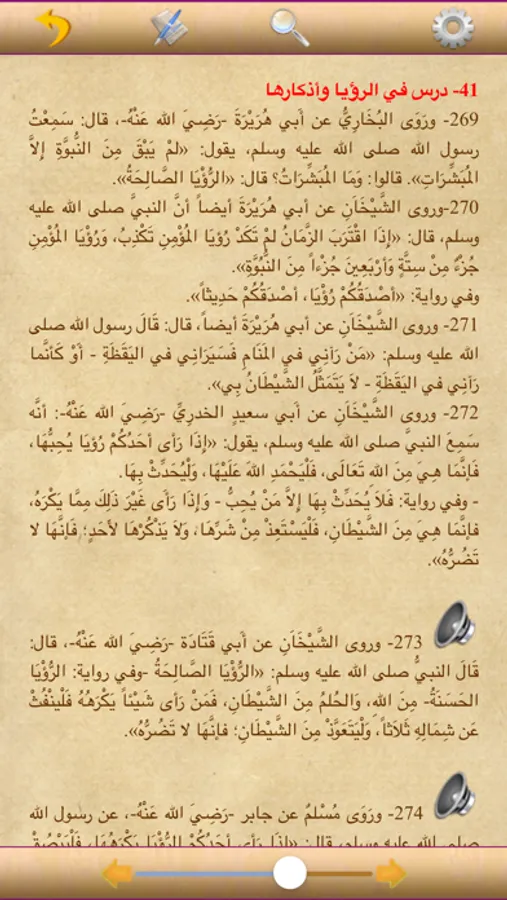 41- درس في الرؤيا وأذكارها
269- ورَوَى البُخَارِيُّ عن أبي هُرَيْرَةَ -رَضِيَ الله عَنْهُ-، قال: سَمِعْتُ
رسول الله صلى الله عليه وسلم، يقول: «لمْ يَبْقَ مِنَ النُّبوَّةِ إلاَّ
المُبَشِّرَاتِ». قالوا: وَمَا المُبَشِّرَاتُ؟ قال: «الرُّؤْيَا الصَّالِحَةُ».
270-وروى الشَّيْخَاَنِ عن أبي هُرَيْرَةَ أيضاً أنَّ النبيَّ صلى الله عليه
وسلم، قال: «إِذَا اقْتَرَبَ الزَّمَانُ لمْ تَكَدْ رُؤيَا المُؤْمِنِ تَكْذِبُ، وَرُؤْيَا المُؤْمِنِ
جُزْءٌ مِنْ سِتَّةٍ وَأَرْبَعِينَ جُزْءاً مِنَ النُّبُوَّةِ».
وفي رواية: «أصْدَقُكُمْ رُؤْيَا، أصْدَقُكُمْ حَدِيثاً».
271- وروى الشَّيْخَاَنِ عن أبي هُرَيْرَةَ أيضاً، قال: قَالَ رسول الله صلى
الله عليه وسلم: «مَنْ رَآنِي في المَنَامِ فَسَيَرَانِي في اليَقَظَةِ - أوْ كَأنَّما
رَآنِي في اليَقَظَةِ - لاَ يَتَمَثَّلُ الشَّيْطَانُ بِي».
272- وروى الشَّيْخَاَنِ عن أبي سعيدٍ الخدريِّ -رَضِيَ الله عَنْهُ-: أنَّه
سَمِعَ النبيَّ صلى الله عليه وسلم، يقول: «إِذَا رَأى أحَدُكُمْ رُؤيَا يُحِبُّهَا،
فَإنَّمَا هِيَ مِنَ اللهِ تَعَالَى، فَلْيَحْمَدِ اللهَ عَلَيْهَا، وَلْيُحَدِّثْ بِهَا.
- وفي رواية: فَلاَ يُحَدِّثْ بِهَا إلاَّ مَنْ يُحِبُّ - وَإِذَا رَأى غَيْرَ ذَلِكَ مِمَّا يَكْرَهُ،
فإنَّمَا هِيَ مِنَ الشَّيْطَانِ، فَلْيَسْتَعِذْ مِنْ شَرِّهَا، وَلاَ يَذْكُرْهَا لأَحَدٍ؛ فَإنَّهَا لا
تَضُرُّهُ».
273- وروى الشَّيْخَاَنِ عن أبي قَتَادَةَ -رَضِيَ الله عَنْهُ-، قال:
قَالَ النبيُّ صلى الله عليه وسلم: «الرُّؤْيَا الصَّالِحَةُ -وفي رواية: الرُّؤْيَا
الحَسَنَةُ- مِنَ اللهِ، وَالحُلمُ مِنَ الشَّيْطَانِ، فَمَنْ رَأى شَيْئاً يَكْرَهُهُ فَلْيَنْفُثْ
عَن شِمَالِهِ ثَلاَثاً، وَلْيَتَعَوَّذْ مِنَ الشَّيْطَانِ؛ فإنَّهَا لا تَضُرُّهُ».
274- ورَوَى مُسْلِمٌ عن جابر -رَضِيَ الله عَنْهُ-، عن رسول الله
صلى الله عليه وسلم، قال: «إذَا رَأى أحَدُكُمْ الرُّؤْيَا يَكْرَهُهَا، فَلْيَبْصُقْ